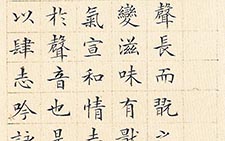 聲長而翫之
變滋味有猒
氣宣和情志
於聲音也是
以肆志吟詠